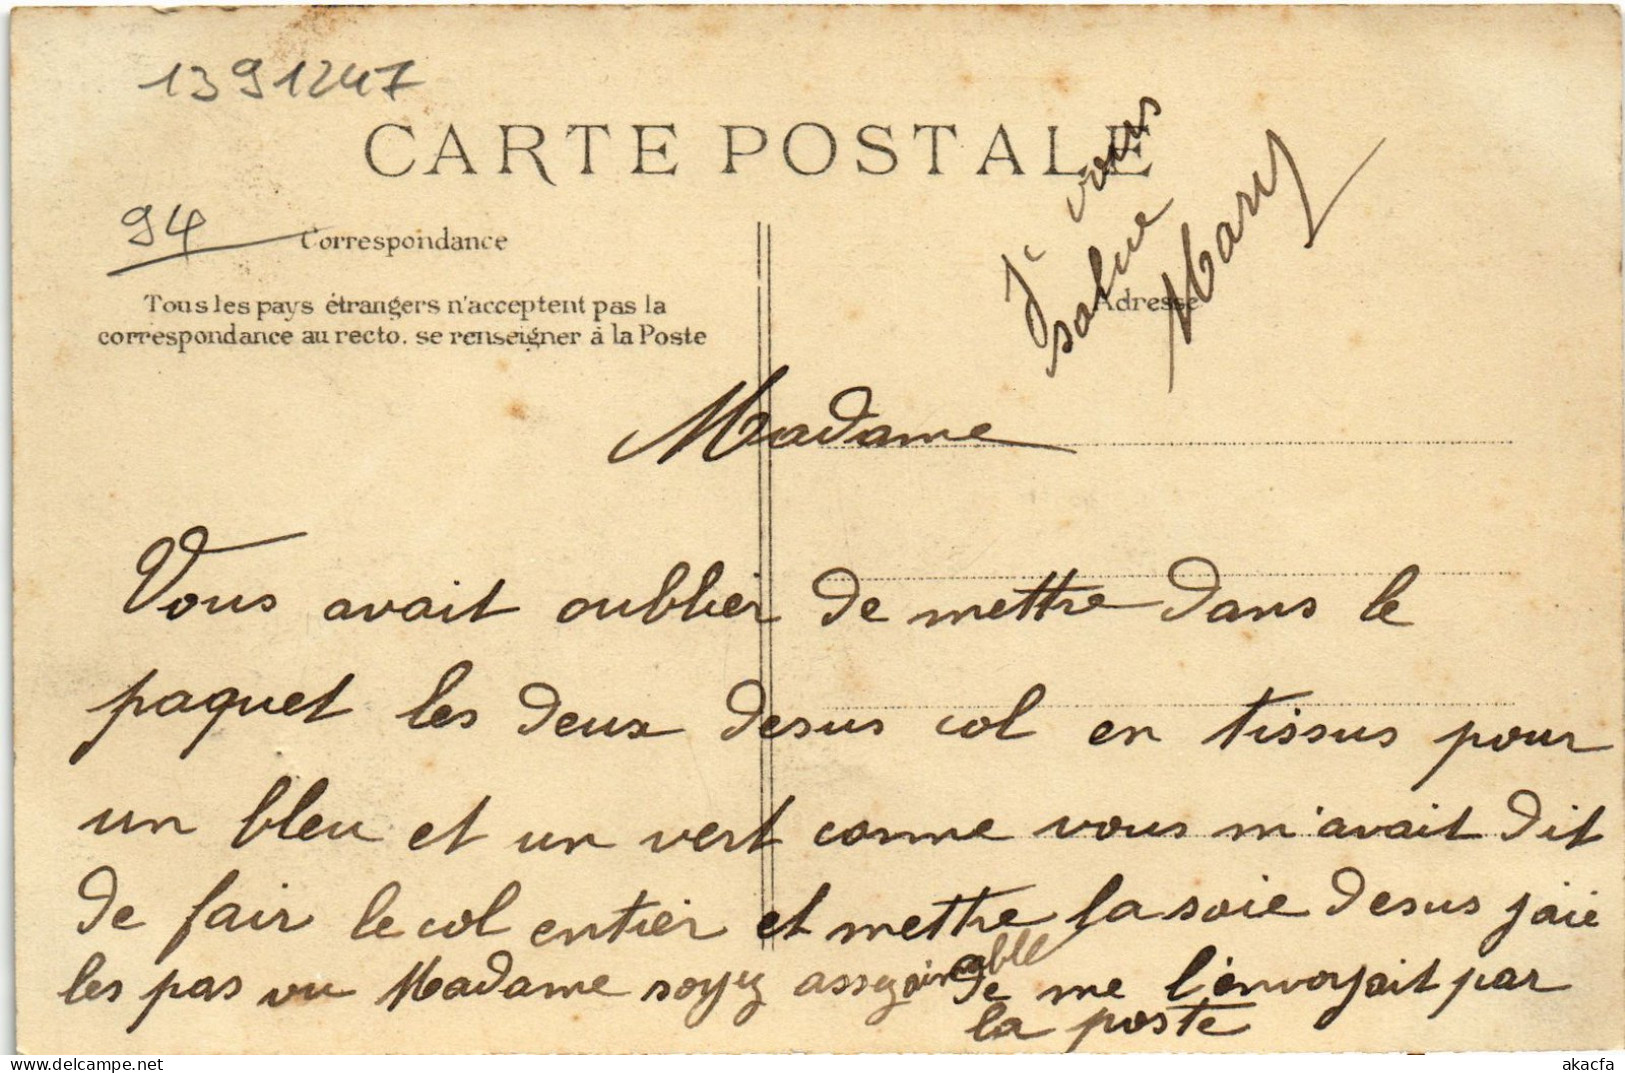 1391247
CARTE POSTALE
94
Correspondance
Tous les pays étrangers n'acceptent pas la
correspondance au recto, se renseigner à la Poste
Adresse
Je vous
salue
Mary
Madame
Vous avait oublier de mettre dans le
paquet les deux desus col en tissus pour
un bleu et un vert comme vous m'avait dit
de fair le col entier et mettre la soie desus jaie
les pas vu Madame soyez assez aimable de me l'envoyait par
la poste
akacfa